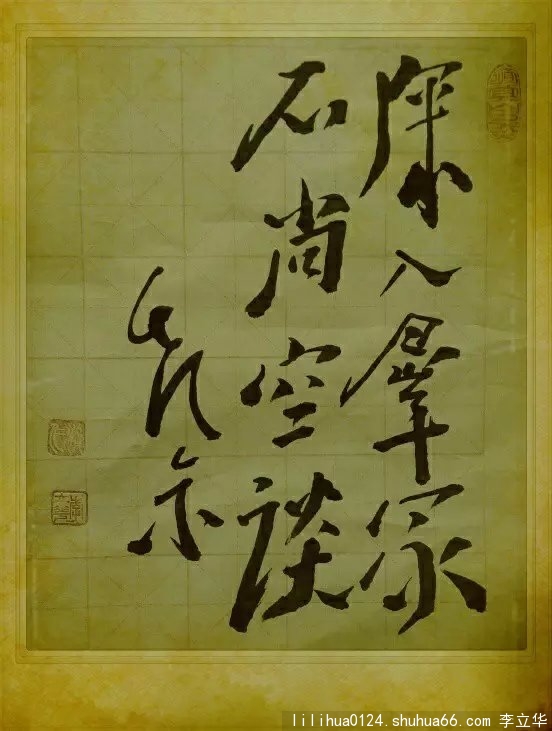 深入羣眾
不尚空談
毛泽东
lilihua0124.shuhua66.com 李立华